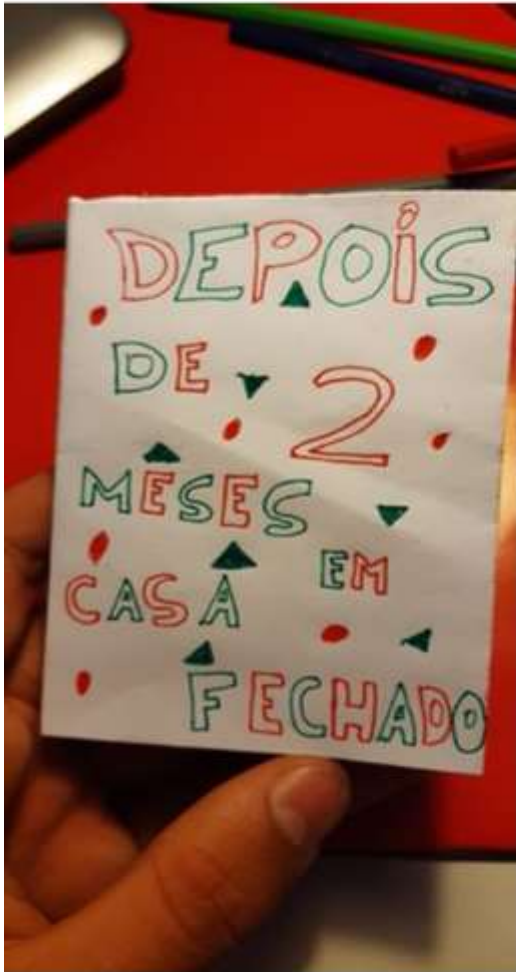 DEPOIS
DE 2
MESES
EM
CASA
FECHADO